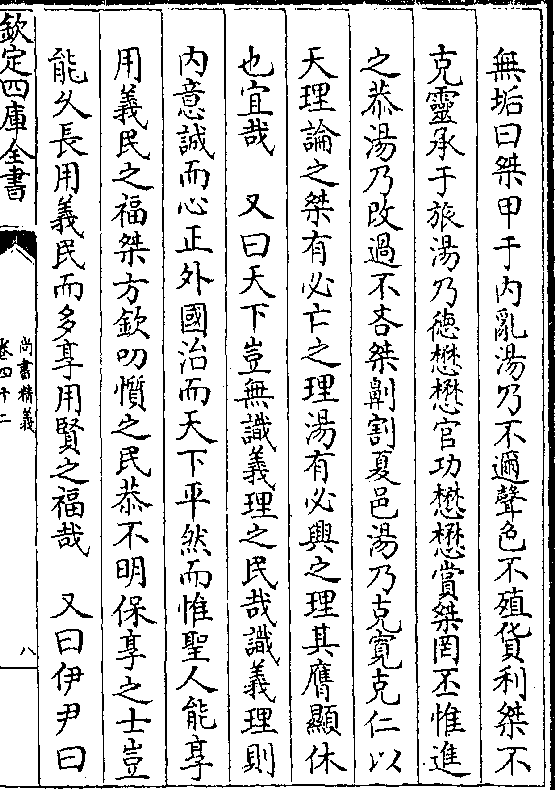 無垢曰桀甲于內亂湯乃不邇聲色不殖貨利桀不
克靈承于旅湯乃德懋懋官功懋懋賞桀罔丕惟進
之恭湯乃改過不吝桀劓割夏邑湯乃克寛克仁以
天理論之桀有必亡之理湯有必興之理其膺顯休
也宜哉　又曰天下豈無識義理之民哉識義理則
内意誠而心正外國治而天下平然而惟聖人能享
用義民之福桀方欽叨懫之民恭不明保享之士豈
能久長用義民而多享用賢之福哉　又曰伊尹曰
欽定四庫全書
尚書精義
卷四十二
八